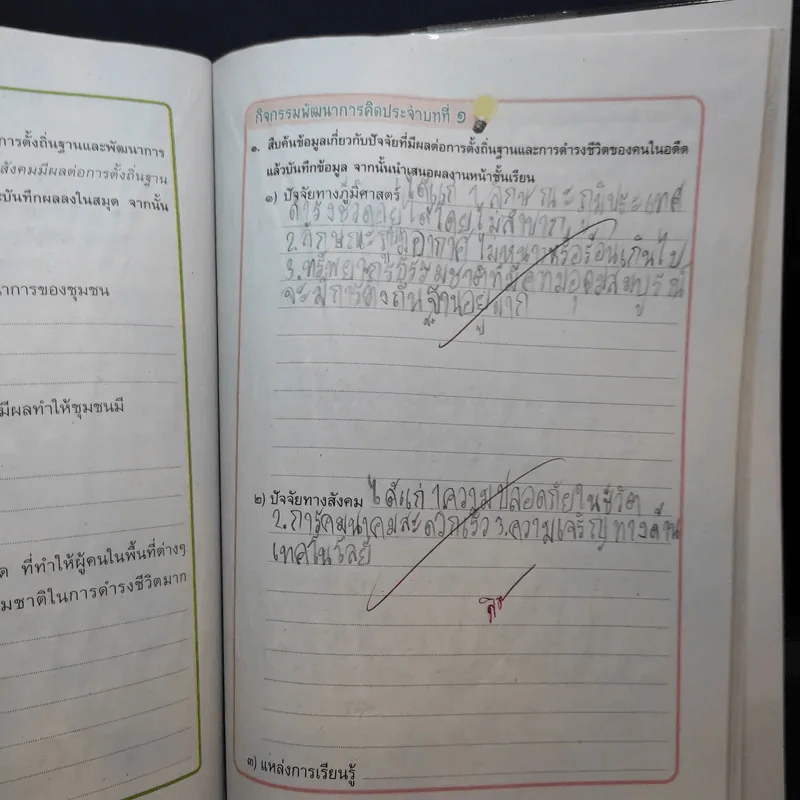 การตั้งถิ่นฐานและพัฒนาการ
สังคมมีผลต่อการตั้งถิ่นฐาน
ะบันทึกผลลงในสมุด จากนั้น
นาการของชุมชน
มีผลทำให้ชุมชนมี
ด ที่ทำให้ผู้คนในพื้นที่ต่างๆ
มชาติในการดำรงชีวิตมาก
กิจกรรมพัฒนาการคิดประจำบทที่ ๑
๑. สืบค้นข้อมูลเกี่ยวกับปัจจัยที่มีผลต่อการตั้งถิ่นฐานและการดำรงชีวิตของคนในอดีต
แล้วบันทึกข้อมูล จากนั้นนำเสนอผลงานหน้าชั้นเรียน
๑) ปัจจัยทางภูมิศาสตร์ ได้แก่ 1.ลักษณะภูมิประเทศ
ดำรงชีวิตอยู่ได้โดยไม่
2.ลักษณะภูมิอากาศ ไม่หนาวหรือร้อนเกินไป
3.ทรัพยากรธรรมชาติที่มีความอุดมสมบูรณ์
จะมีการตั้งถิ่นฐานอยู่มาก
๒) ปัจจัยทางสังคม ได้แก่ 1ความปลอดภัยในชีวิต
2.การคมนาคมสะดวกเร็ว 3.ความเจริญทางด้าน
เทคโนโลยี
๓) แหล่งการเรียนรู้